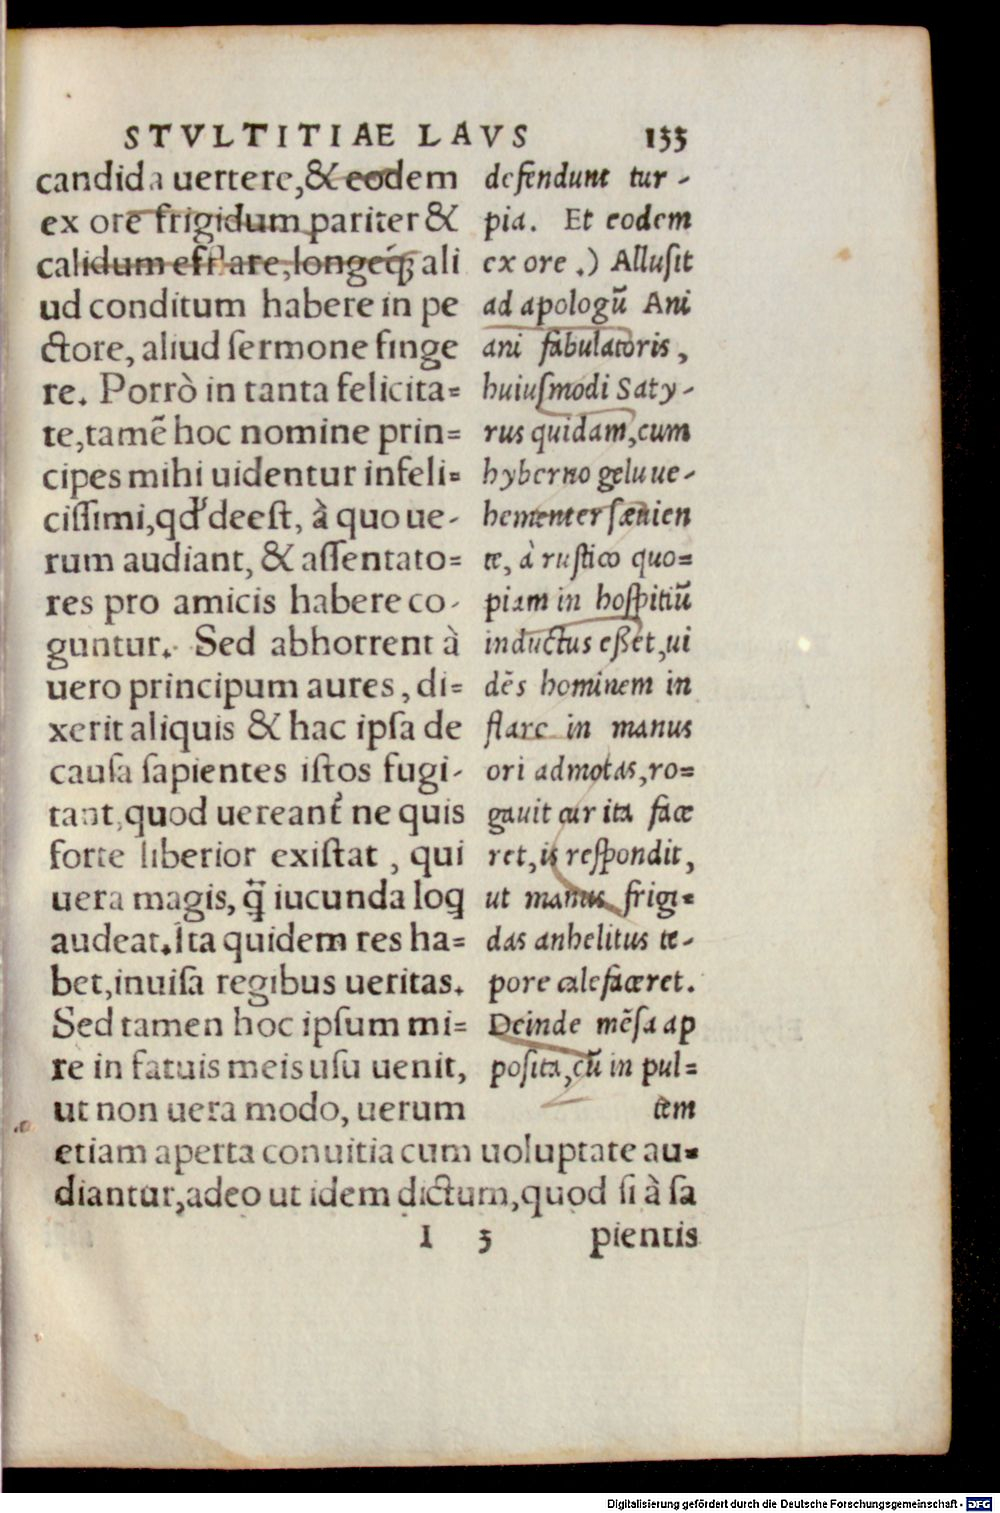 STVLTITIAE LAVS 133
candida uertere, & eodem
ex ore frigidum pariter &
calidum efflare, longeq́; ali
ud conditum habere in pe
ctore, aliud sermone finge
re. Porrò in tanta felicita=
te, tamẽ hoc nomine prin=
cipes mihi uidentur infeli=
cissimi, qđ deest, à quo ue-
rum audiant, & assentato=
res pro amicis habere co-
guntur. Sed abhorrent à
uero principum aures, di=
xerit aliquis & hac ipsa de
causa sapientes istos fugi-
tant, quod uereant᷑ ne quis
forte liberior existat, qui
uera magis, q̃ iucunda loq
audeat. Ita quidem res ha=
bet, inuisa regibus ueritas.
Sed tamen hoc ipsum mi=
re in fatuis meis usu uenit,
ut non uera modo, uerum
etiam aperta conuitia cum uoluptate au=
diantur, adeo ut idem dictum, quod si à sa
defendunt tur-
pia. Et eodem
ex ore.) Allusit
ad apologũ Ani
ani fabulatoris,
huiusmodi Saty-
rus quidam, cum
hyberno gelu ue-
hementer sæuien
te, à rustico quo=
piam in hospitiũ
inductus esset, ui
dẽs hominem in
flare in manus
ori admotas, ro=
gauit cur ita face
ret, is respondit,
ut manus frigi=
das anhelitus te-
pore calefaceret.
Deinde mẽsa ap
posita, cũ in pul=
tem
I 3 pientis
Digitalisierung gefördert durch die Deutsche Forschungsgemeinschaft - DFG